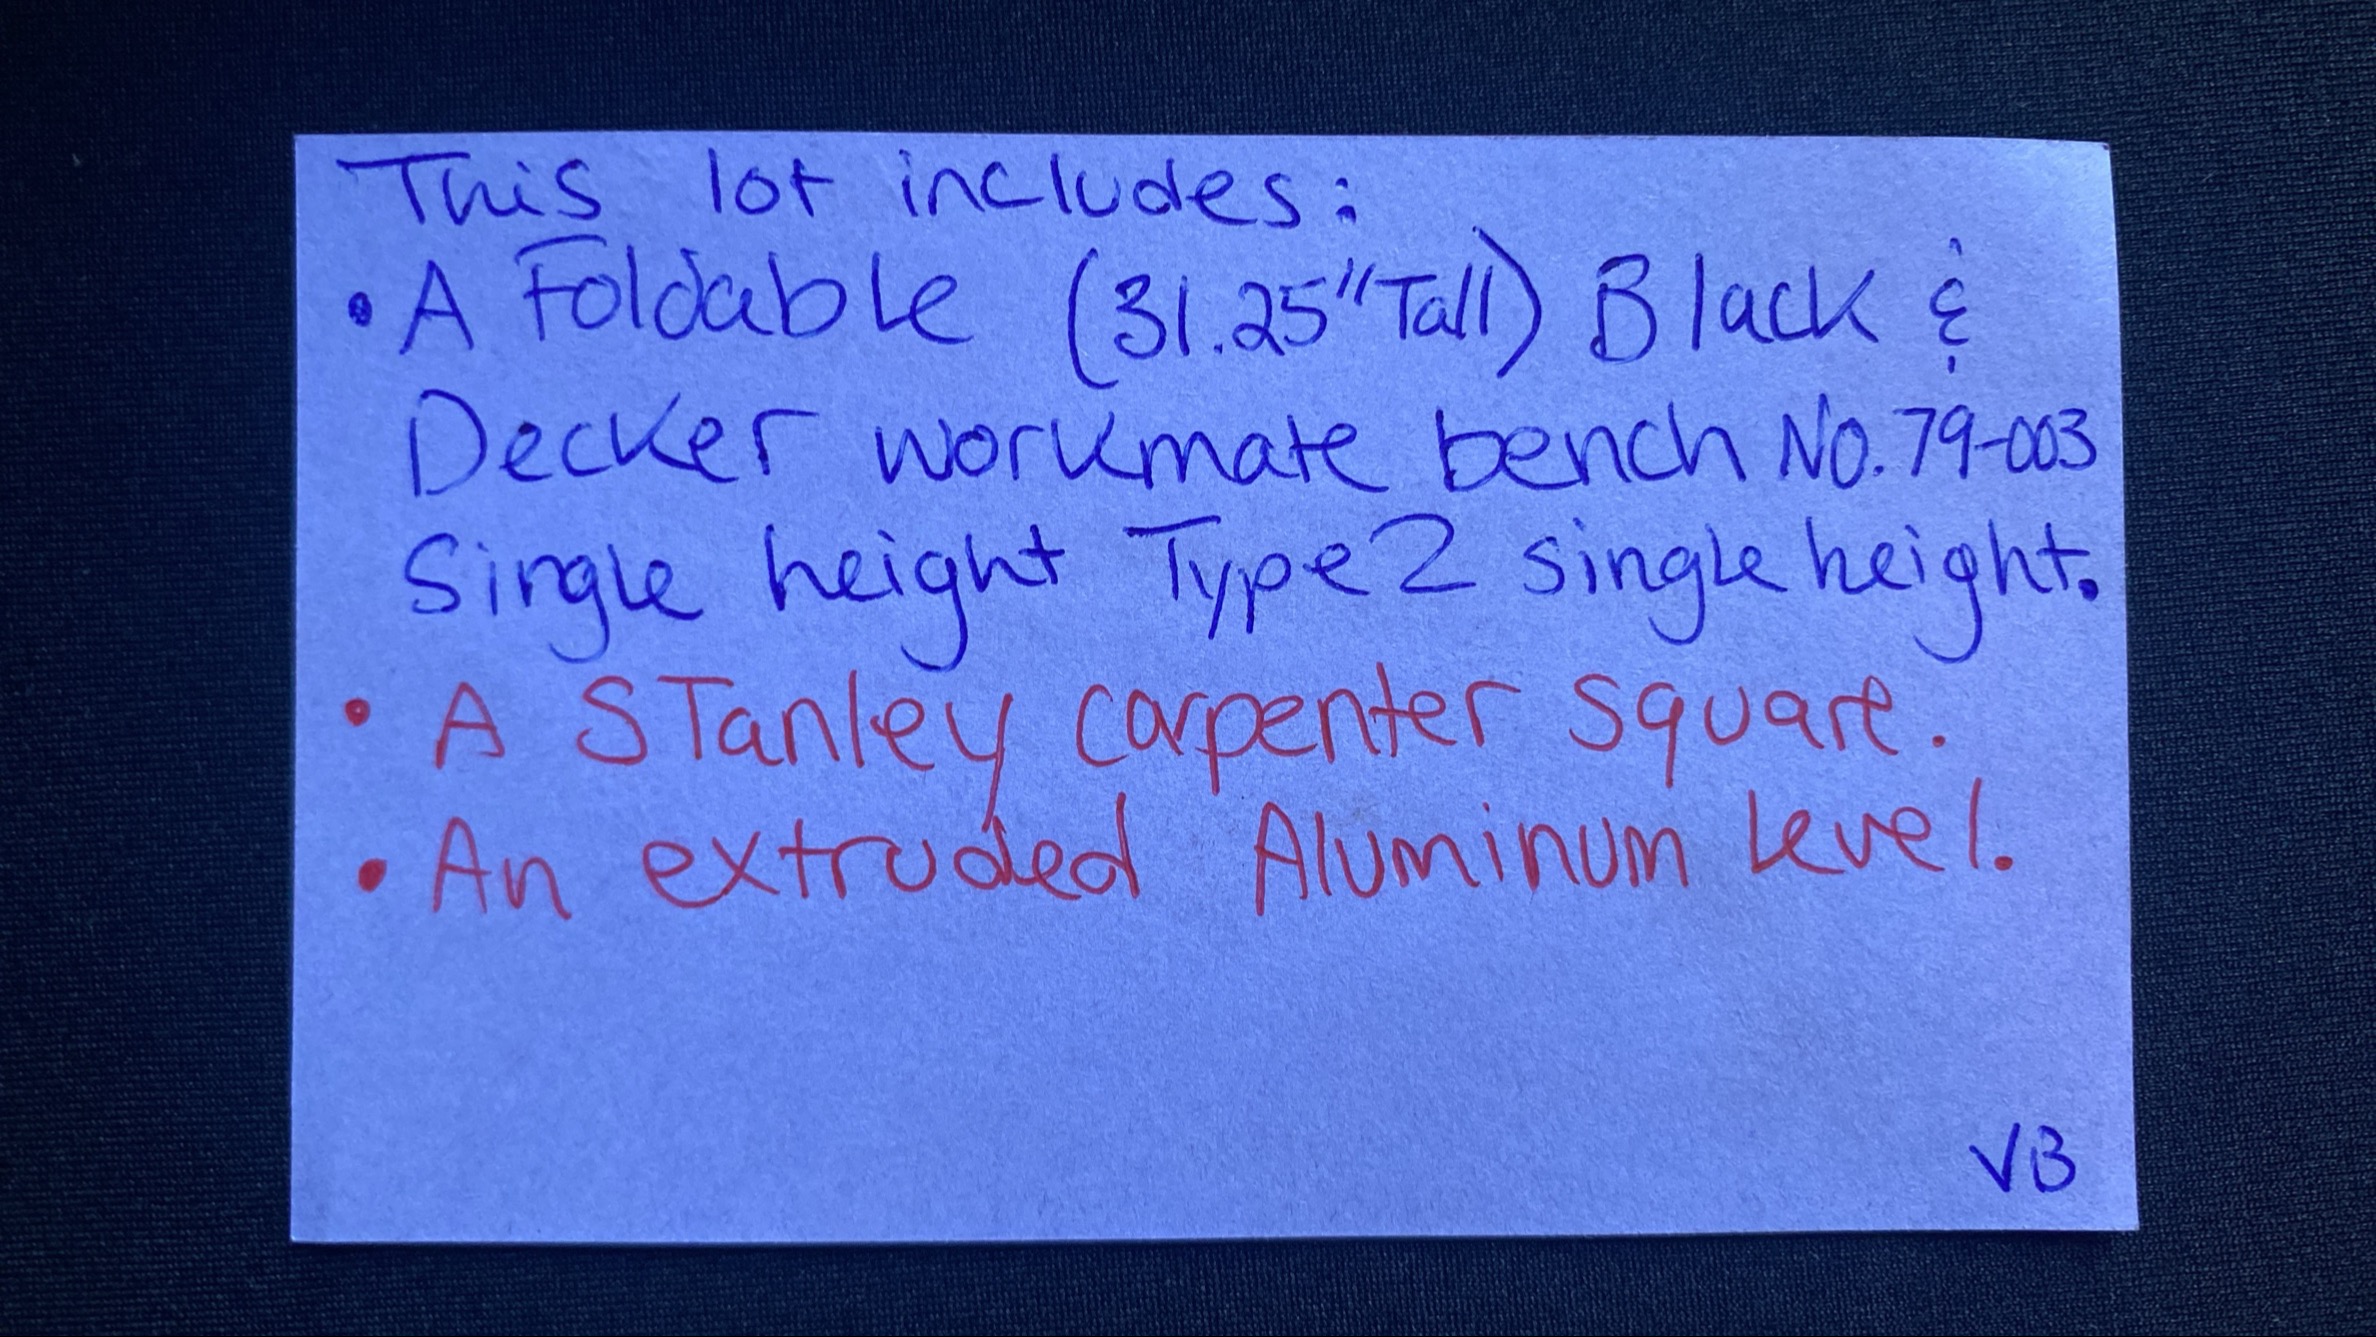 This lot includes:
• A Foldable (31.25" Tall) Black &
Decker workmate bench No. 79-003
Single height Type 2 single height.
• A Stanley carpenter square.
• An extruded Aluminum Level.
VB